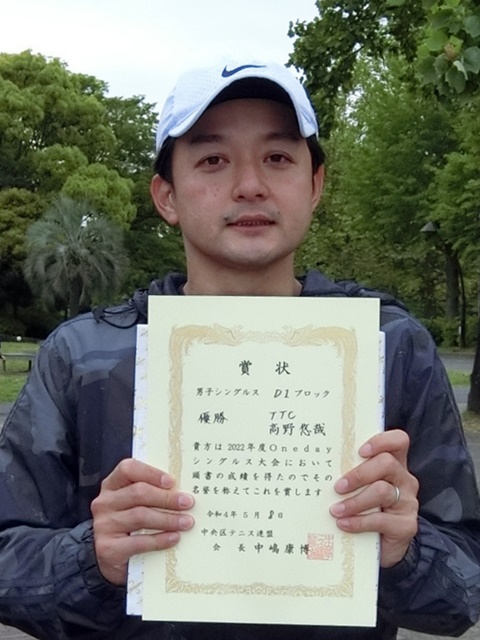 賞状
男子シングルス D1ブロック
優勝 TTC
高野悠哉
貴方は2022年度Oneday
シングルス大会において
頭書の成績を得たのでその
名誉を称えてこれを賞します
令和4年5月8日
中央区テニス連盟
会長 中嶋康博